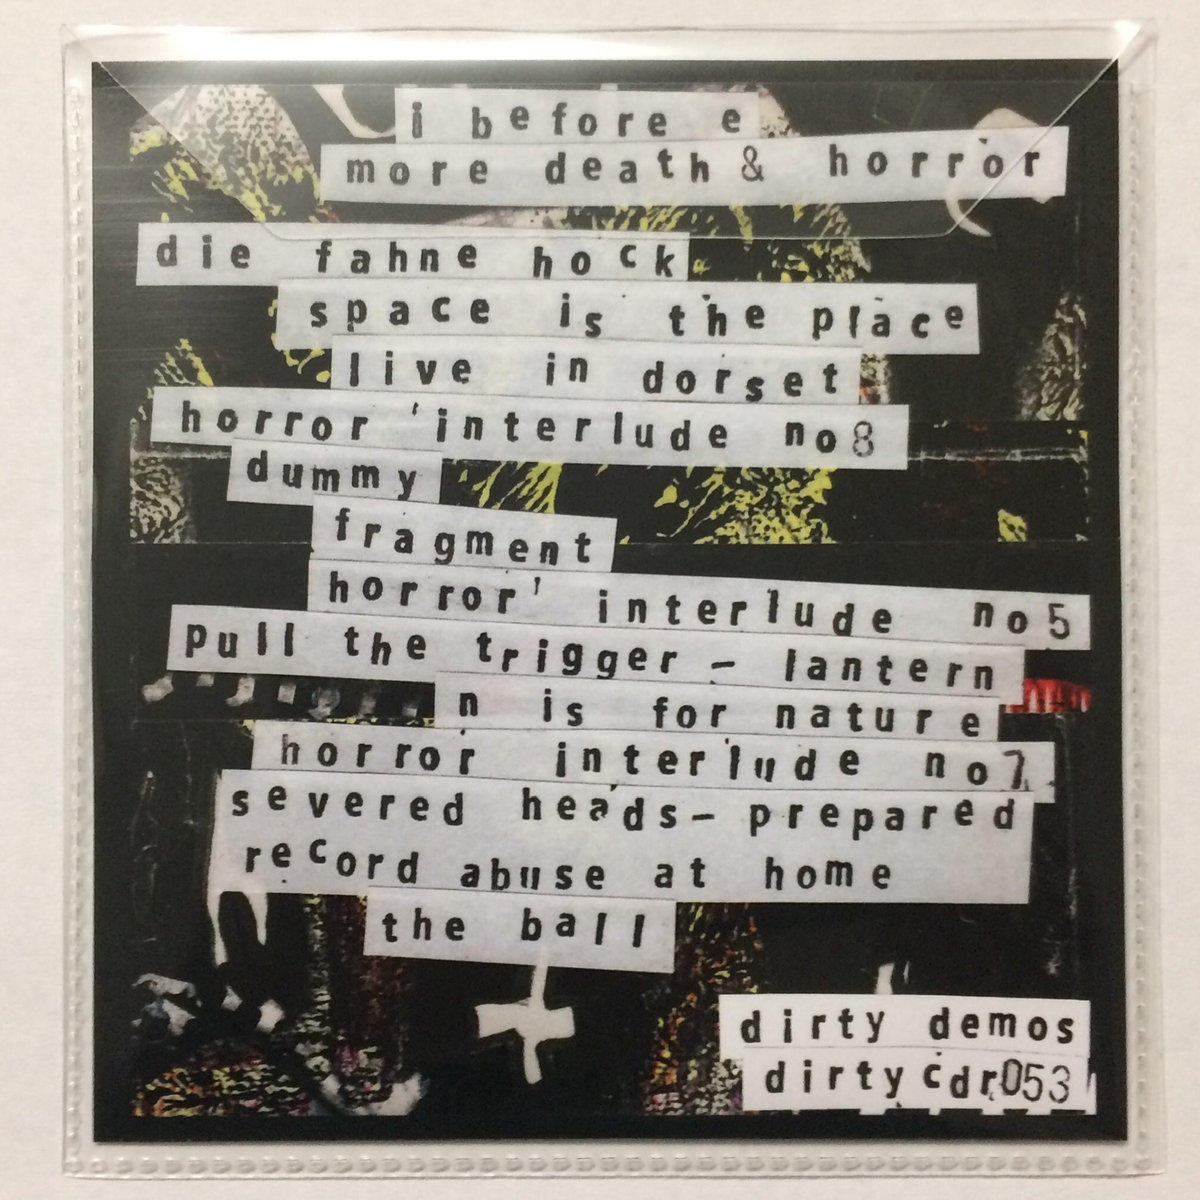 i before e
more death & horror
die fahne hock
space is the place
live in dorset
horror 'interlude no8
dummy
fragment
horror' interlude no5
pull the trigger - lantern
n is for nature
horror interlude no7
severed heads- prepared
record abuse at home
the ball
dirty demos
dirtycdr053